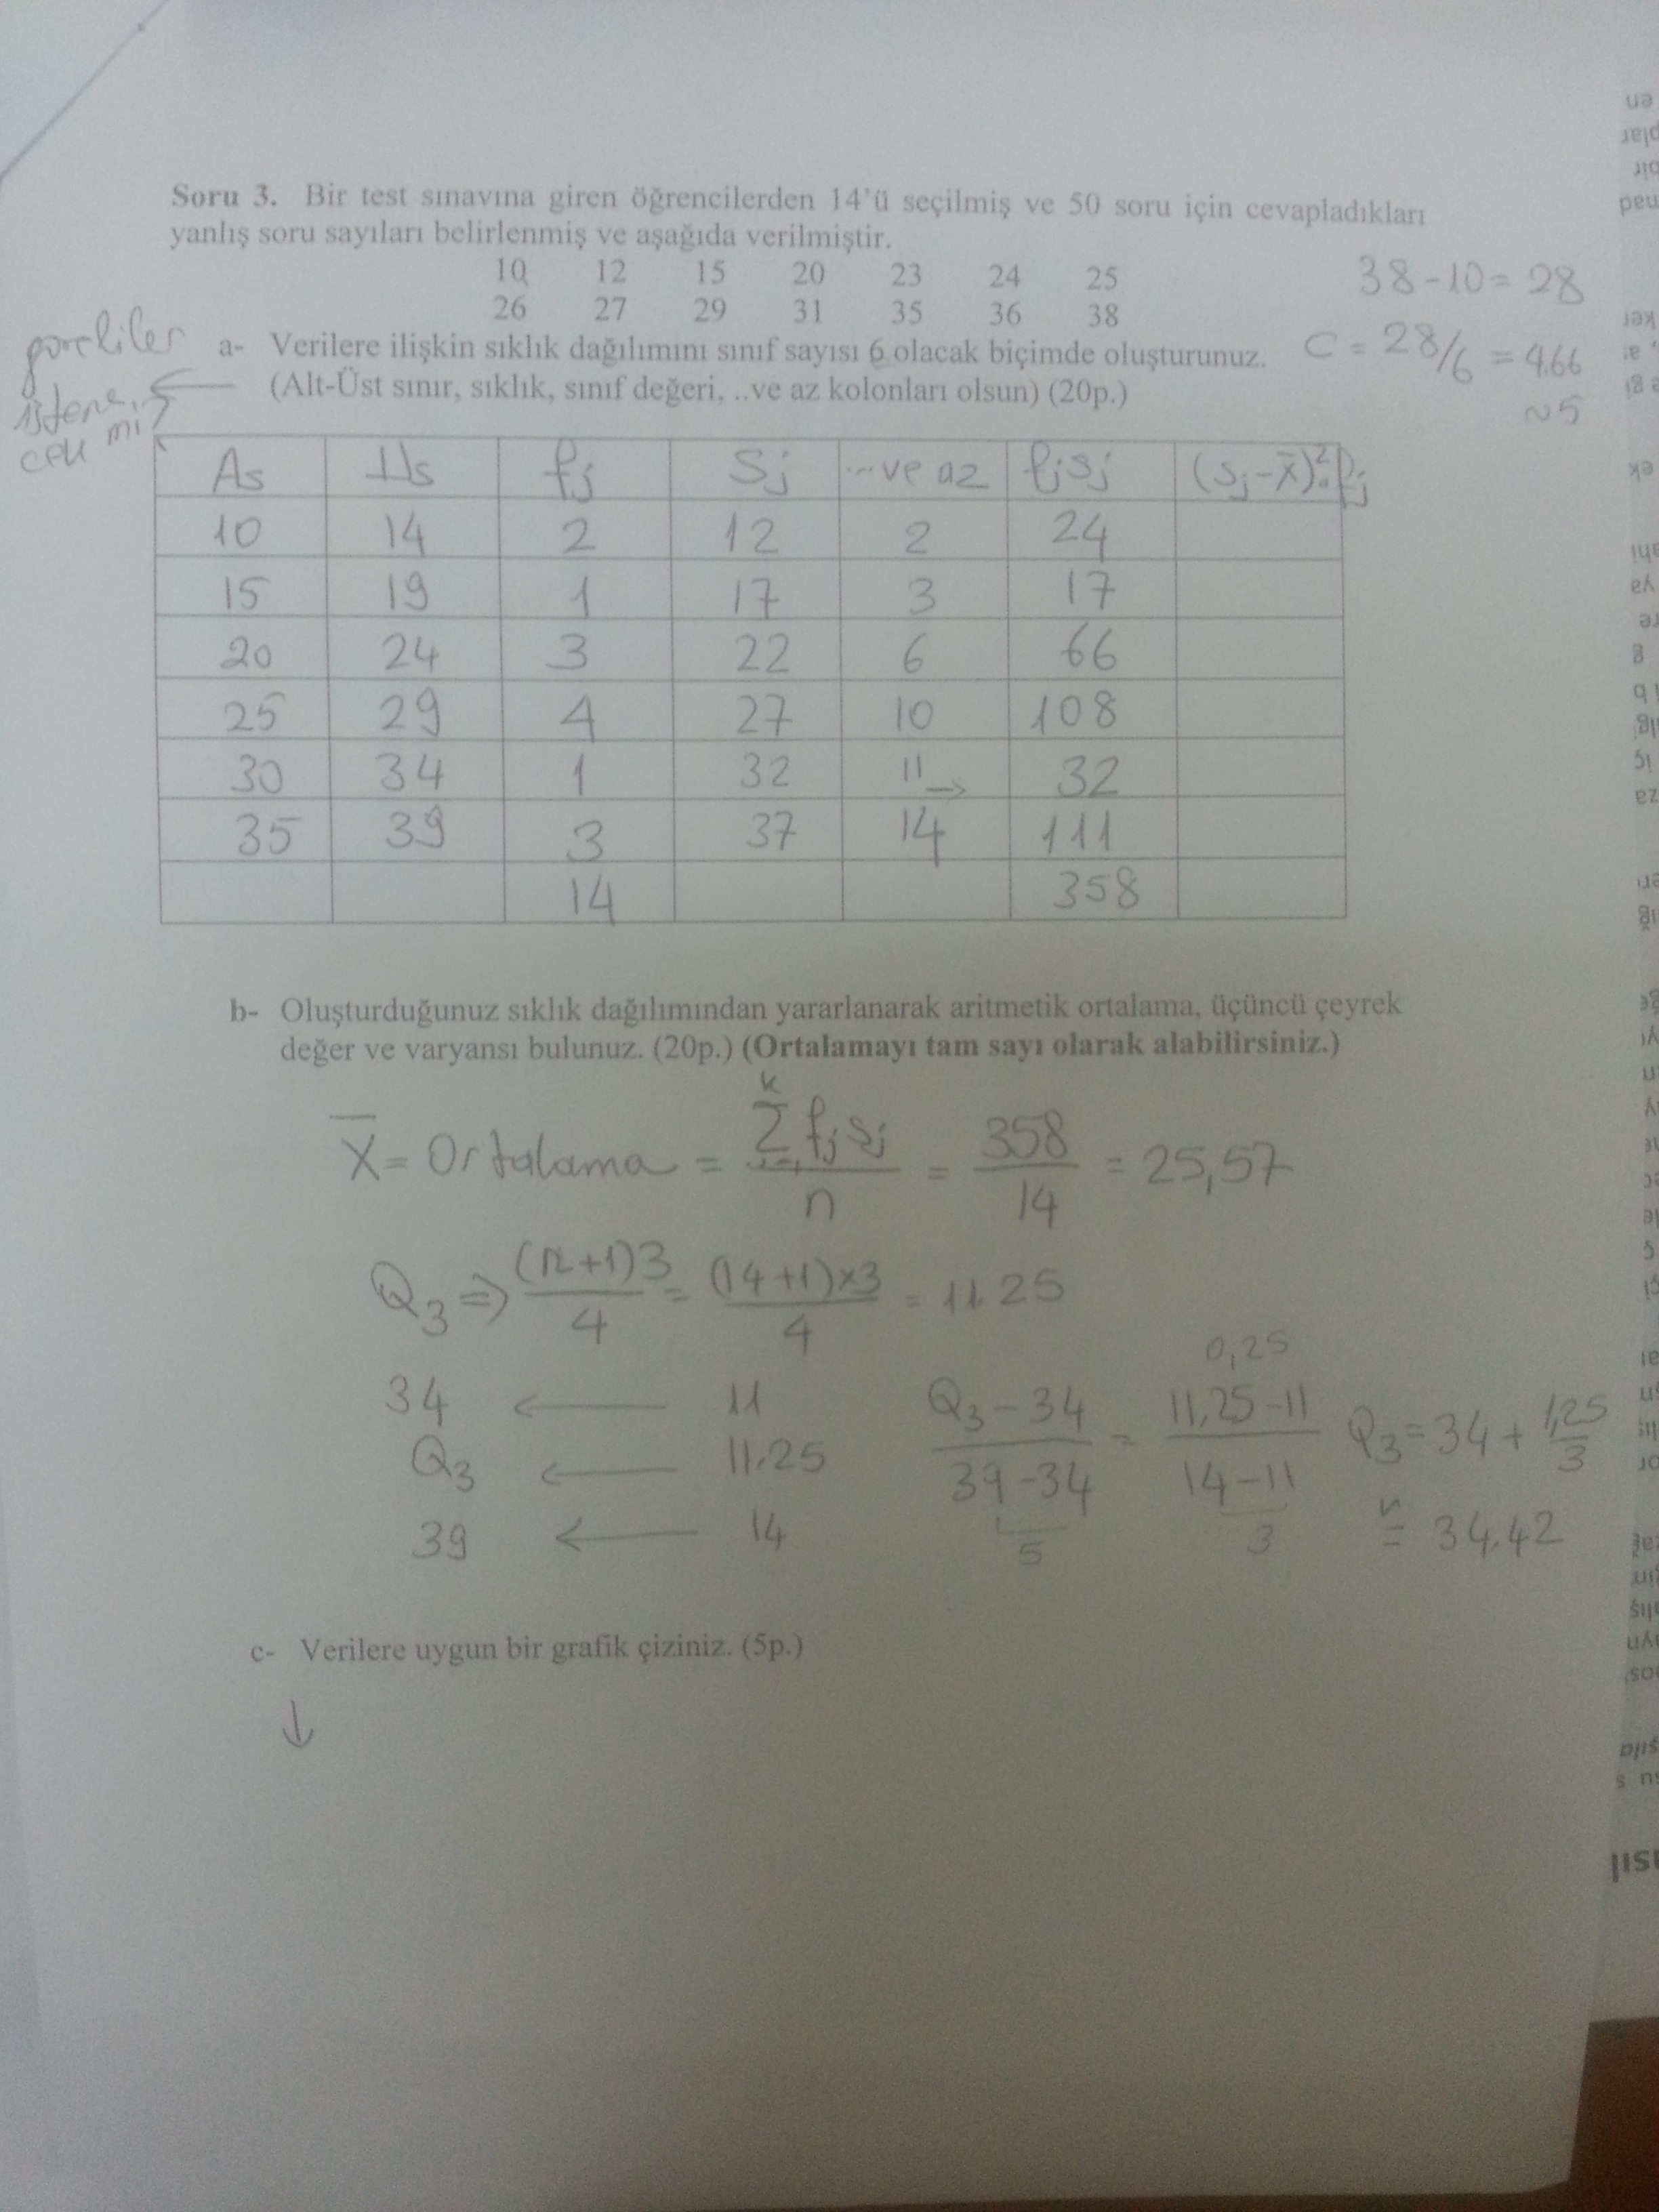 Soru 3. Bir test sınavına giren öğrencilerden 14'ü seçilmiş ve 50 soru için cevapladıkları
yanlış soru sayıları belirlenmiş ve aşağıda verilmiştir.
10 12 15 20 23 24 25
26 27 29 31 35 36 38
38-10=28
a- Verilere ilişkin sıklık dağılımını sınıf sayısı 6 olacak biçimde oluşturunuz.
C = 28/6 = 4.66
~5
(Alt-Üst sınır, sıklık, sınıf değeri, ..ve az kolonları olsun) (20p.)
istene
cek mi?
As Üs fj Sj ...ve az fjsj (sj-x̄)².fj
10 14 2 12 2 24
15 19 1 17 3 17
20 24 3 22 6 66
25 29 4 27 10 108
30 34 1 32 11 → 32
35 39 3 37 14 111
14 358
b- Oluşturduğunuz sıklık dağılımından yararlanarak aritmetik ortalama, üçüncü çeyrek
değer ve varyansı bulunuz. (20p.) (Ortalamayı tam sayı olarak alabilirsiniz.)
X̄ = Ortalama = Σ fjsj / n = 358 / 14 = 25,57
k
Q3 ⇒ (n+1)3 / 4 = (14+1)x3 / 4 = 11.25
34 ← 11
Q3 ← 11.25
39 ← 14
0,25
Q3-34 / 39-34 = 11,25-11 / 14-11
5 3
Q3 = 34 + 1,25 / 3
= 34.42
c- Verilere uygun bir grafik çiziniz. (5p.)
↓